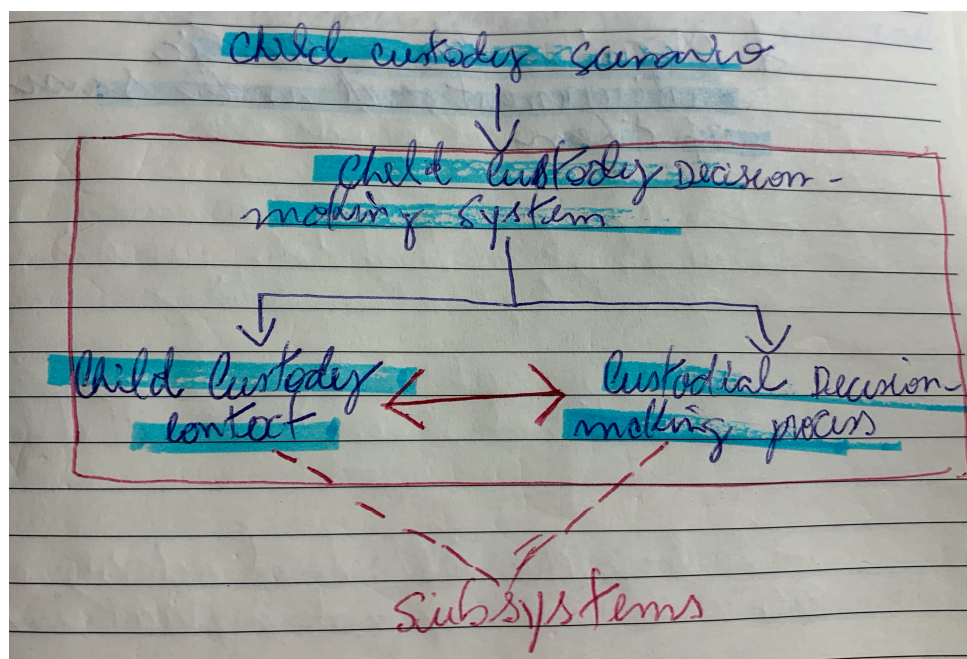 Child custody scenario
Child Custody Decision-
making system
Child Custody
context
Custodial Decision-
making process
Subsystems